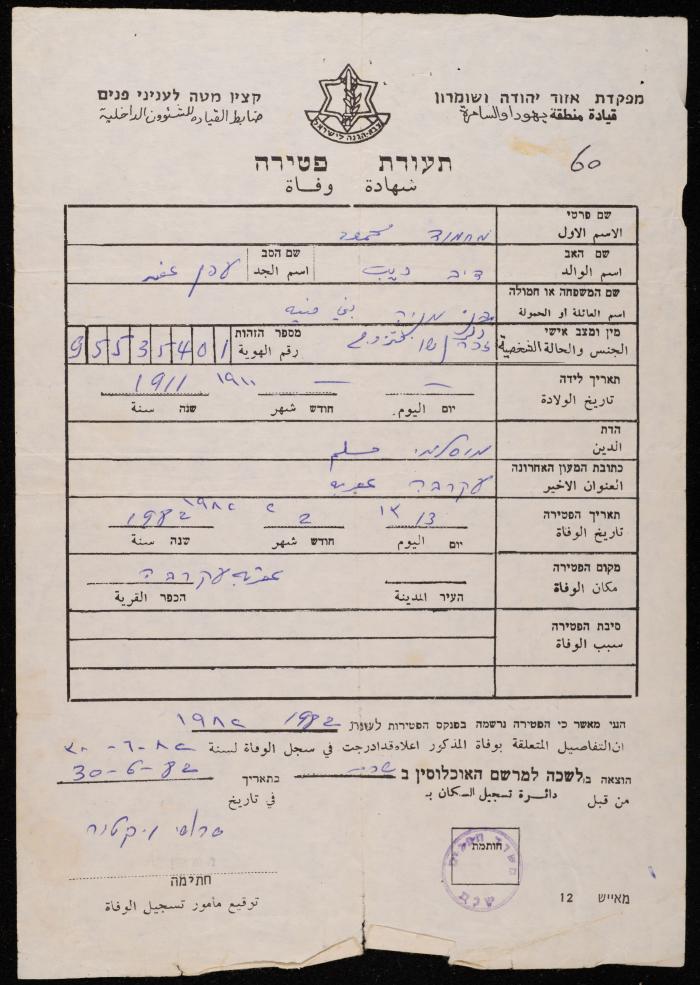 מפקדת אזור יהודה ושומרון
قيادة منطقة يهودا والسامرة
קצין מטה לעניני פנים
ضابط القيادة للشؤون الداخلية
צבא הגנה לישראל
60
תעודת פטירה
شهادة وفاة
שם פרטי
الاسم الاول
מחמוד محمود
שם האב
اسم الوالد
דיב ديب
שם הסב
اسم الجد
שם המשפחה או חמולה
اسم العائلة أو الحمولة
בני מניה بني منيه
מין ומצב אישי
الجنس والحالة الشخصية
זכר נשוי متزوج
מספר הזהות
رقم الهوية
95535401
תאריך לידה
تاريخ الولادة
— — 1911 ١٩١١
יום اليوم חודש شهر שנה سنة
הדת
الدين
מוסלמי مسلم
כתובת המעון האחרונה
العنوان الاخير
עקרבה عقربه
תאריך הפטירה
تاريخ الوفاة
13 ١٣ 2 ٢ 1982 ١٩٨٢
יום اليوم חודש شهر שנה سنة
מקום הפטירה
مكان الوفاة
עקרבה عقربه
העיר المدينة הכפר القرية
סיבת הפטירה
سبب الوفاة
הנני מאשר כי הפטירה נרשמה בפנקס הפטירות לשנת 1982 ١٩٨٢
ان التفاصيل المتعلقة بوفاة المذكور اعلاه قد ادرجت في سجل الوفاة لسنة
הוצאה ב/לשכה למרשם האוכלוסין ב שכם בתאריך 30-6-82
من قبل دائرة تسجيل السكان بـ في تاريخ ٣٠-٦-٨٢
חותמת
משרד הפנים
שכם
חתימה
توقيع مأمور تسجيل الوفاة
מאייש 12